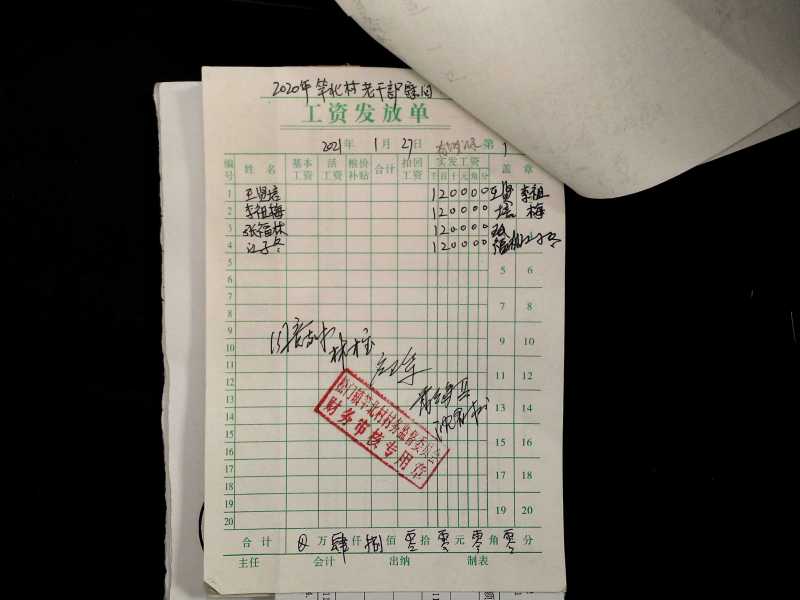 2020年笋北村老干部慰问
工资发放单
2021年 1月 27日 第 1
编号 姓名 基本工资 活工资 粮价补贴 合计 扣回工资 实发工资 千百十元角分 盖章
1 王贤培 120000 王贤培 李祖梅
2 李祖梅 120000
3 张福林 120000
4 江子兵 120000
5 5 6
6
7 7 8
8
9 9 10
10
11 11 12
12
13 13 14
14
15 15 16
16
17 17 18
18
19 19 20
20
同意支付
村村务监督委员会
财务审核专用章
合计 万肆仟捌佰零拾零元零角零分
主任 会计 出纳 制表